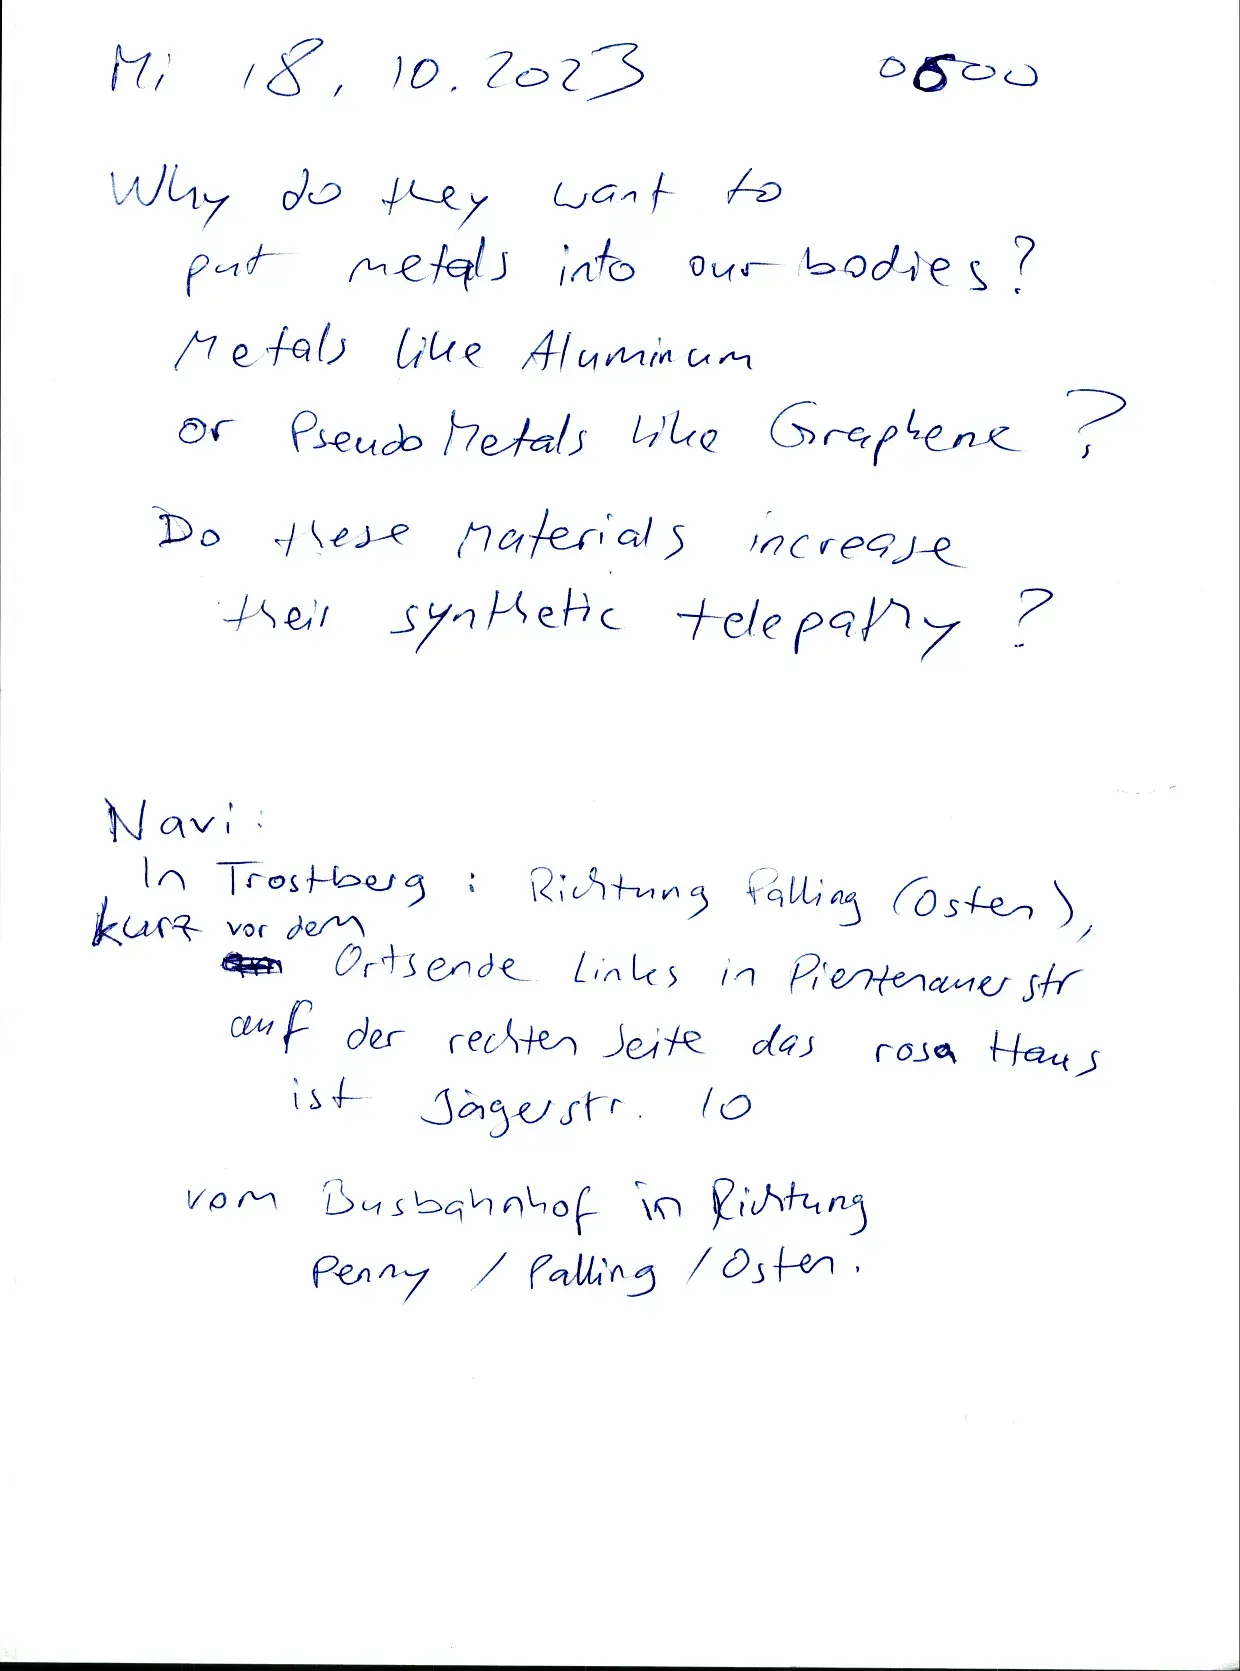 Mi 18.10.2023 0600
Why do they want to
put metals into our bodies?
Metals like Aluminum
or PseudoMetals like Graphene?
Do these Materials increase
their synthetic telepathy?
Navi:
In Trostberg: Richtung Palling (Osten),
kurz vor dem
Ortsende Links in Pienzenauerstr
auf der rechten Seite das rosa Haus
ist Jägerstr. 10
vom Busbahnhof in Richtung
Penny / Palling / Osten.